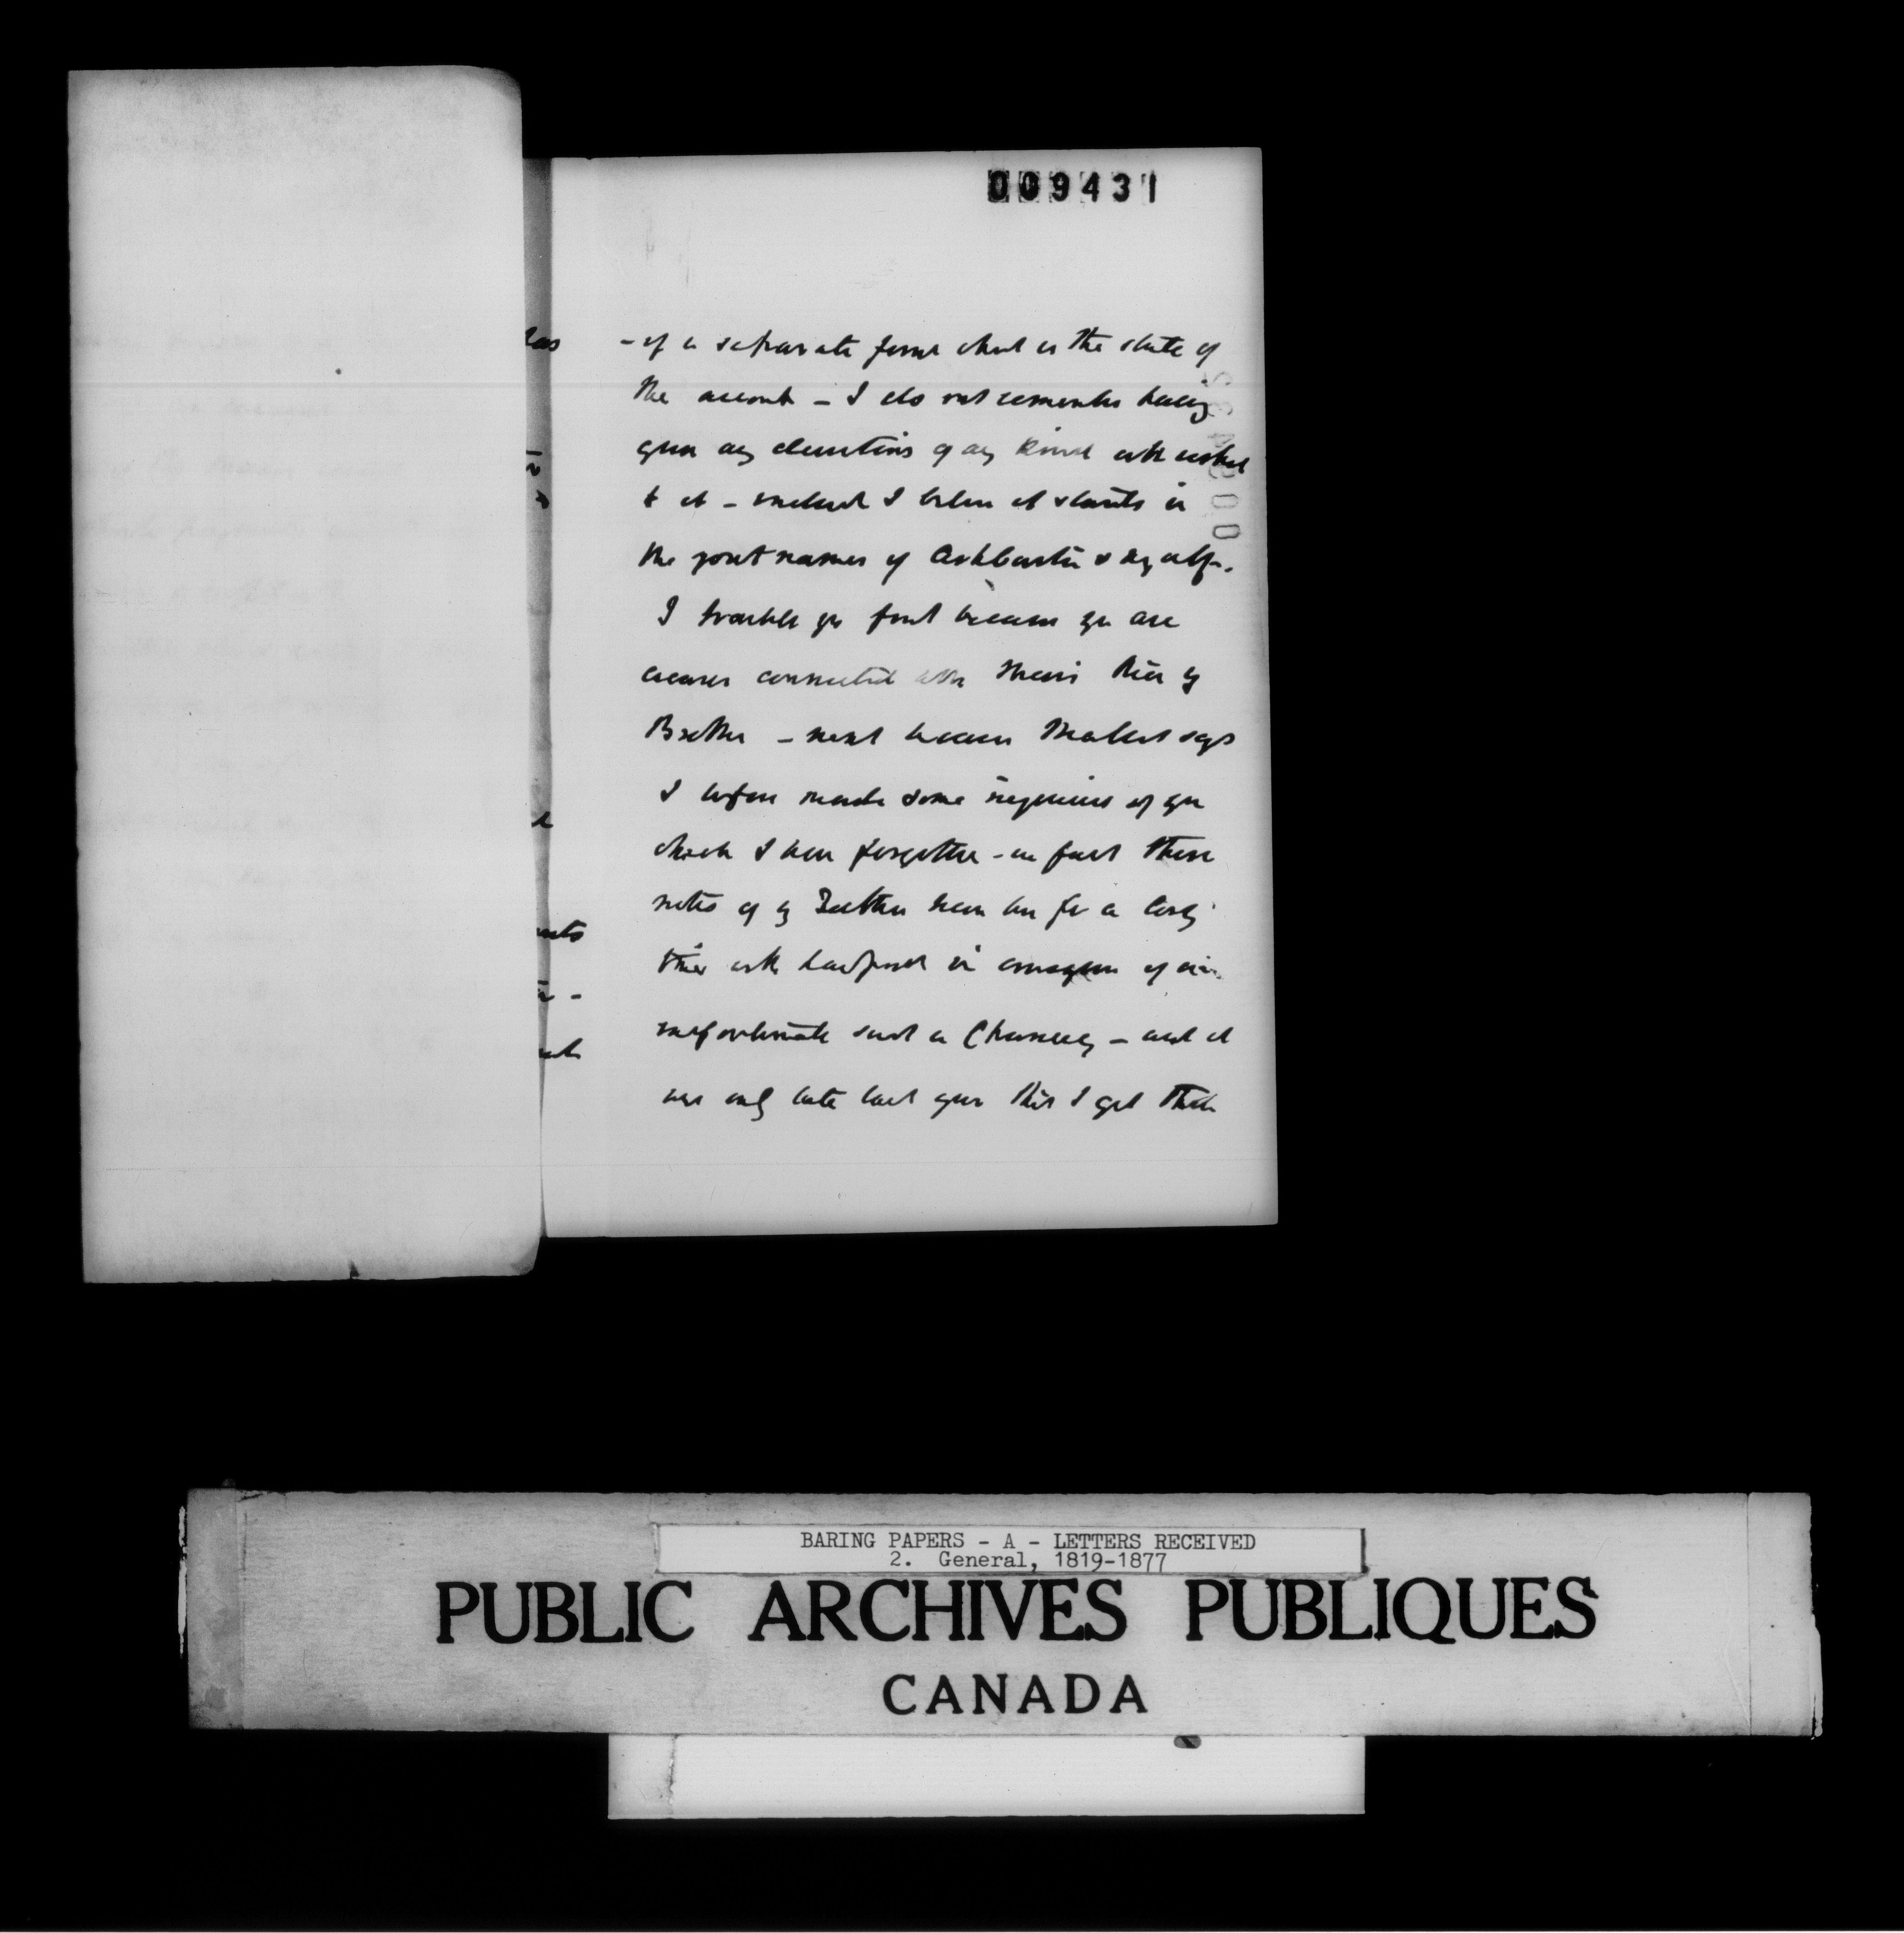 009431
- of a separate form what is the state of
the account - I do not remember having
given any directions of any kind with respect
to it - indeed I believe it stands in
the joint names of Ashburton & myself.
I trouble you first because you are
connected with their
Brother - next because says
I before made some inquiries of you
which I have forgotten - in fact these
notes of my Brother have been for a long
time with in of
unfortunate suit in Chancery - and it
was only late last year that I got them
BARING PAPERS - A - LETTERS RECEIVED
2. General, 1819-1877
PUBLIC ARCHIVES PUBLIQUES
CANADA